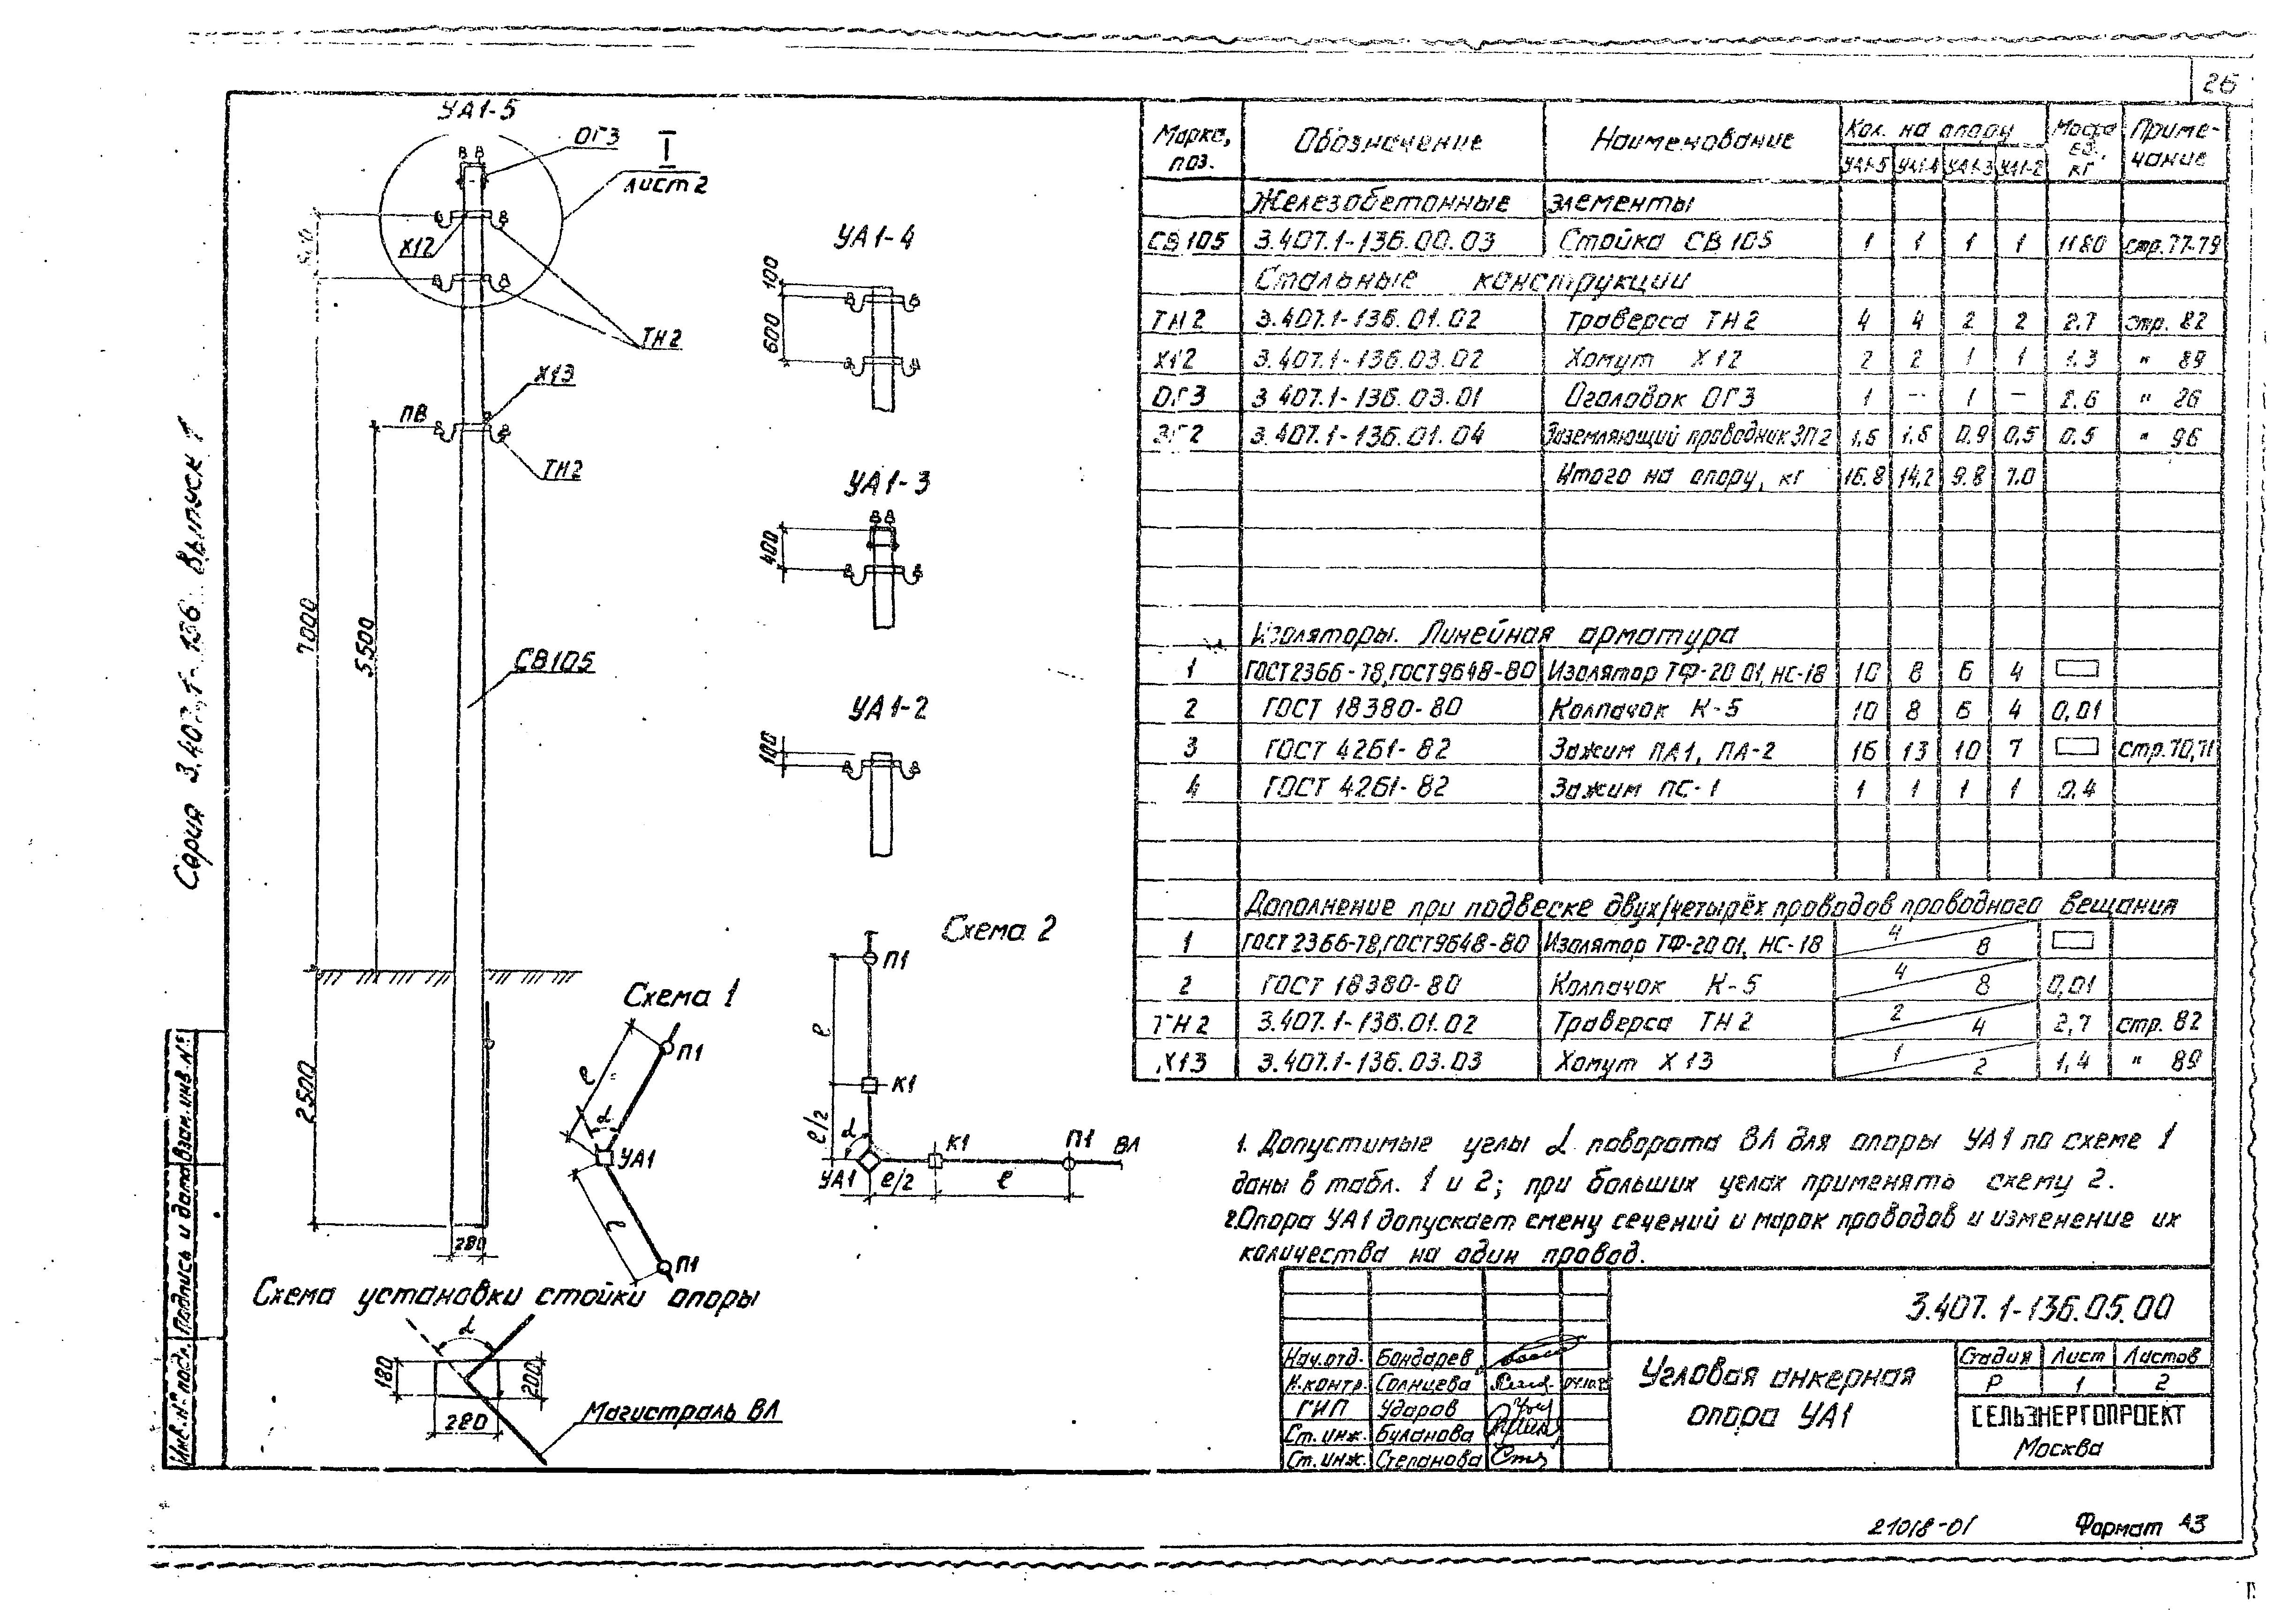 26
Серия 3.407.1-136 Выпуск 1
УА1-5
ОГ3
I
лист 2
Х12
ТН2
Х13
ПВ
ТН2
7000
5500
СВ105
2500
280
УА1-4
100
600
УА1-3
400
УА1-2
100
Схема 1
П1
ℓ
α
УА1
ℓ
П1
Схема 2
П1
ℓ
К1
ℓ/2
α
УА1
ℓ/2
К1
ℓ
П1
ВЛ
Схема установки стойки опоры
α
180
200
280
Магистраль ВЛ
Марка, поз. | Обозначение | Наименование | Кол. на опору | Масса ед., кг | Примечание
УА1-5 УА1-4 УА1-3 УА1-2
Железобетонные элементы
СВ105 3.407.1-136.00.03 Стойка СВ105 1 1 1 1 1180 стр.77-79
Стальные конструкции
ТН2 3.407.1-136.01.02 Траверса ТН2 4 4 2 2 2.7 стр. 82
Х12 3.407.1-136.03.02 Хомут Х12 2 2 1 1 1.3 " 89
ОГ3 3.407.1-136.03.01 Оголовок ОГ3 1 – 1 – 2.6 " 26
3.407.1-136.01.04 Заземляющий проводник ЗП2 0,9 0,5 0.5 " 96
Итого на опору, кг 16.8 14,2 9.8 7.0
Изоляторы. Линейная арматура
1 ГОСТ2366-78,ГОСТ9648-80 Изолятор ТФ-20 01, НС-18 10 8 6 4
2 ГОСТ 18380-80 Колпачок К-5 10 8 6 4 0,01
3 ГОСТ 4261-82 Зажим ПА1, ПА-2 16 13 10 7 стр.70,71
4 ГОСТ 4261-82 Зажим ПС-1 1 1 1 1 0,4
Дополнение при подвеске двух/четырёх проводов проводного вещания
1 ГОСТ2366-78,ГОСТ9648-80 Изолятор ТФ-20 01, НС-18 4/8
2 ГОСТ 18380-80 Колпачок К-5 4/8 0,01
ТН2 3.407.1-136.01.02 Траверса ТН2 2/4 2,7 стр. 82
Х13 3.407.1-136.03.03 Хомут Х13 1/2 1,4 " 89
1. Допустимые углы α поворота ВЛ для опоры УА1 по схеме 1
даны в табл. 1 и 2; при больших углах применять схему 2.
2.Опора УА1 допускает смену сечений и марок проводов и изменение их
количества на один провод.
3.407.1-136.05.00
Нач.отд. Бондарев
Н.контр. Солнцева
ГИП Ударов
Ст. инж. Буланова
Ст. инж. Степанова
Угловая анкерная
опора УА1
Стадия Лист Листов
Р 1 2
СЕЛЬЭНЕРГОПРОЕКТ
Москва
Инв.№ подл. Подпись и дата Взам.инв.№
21018-01
Формат А3